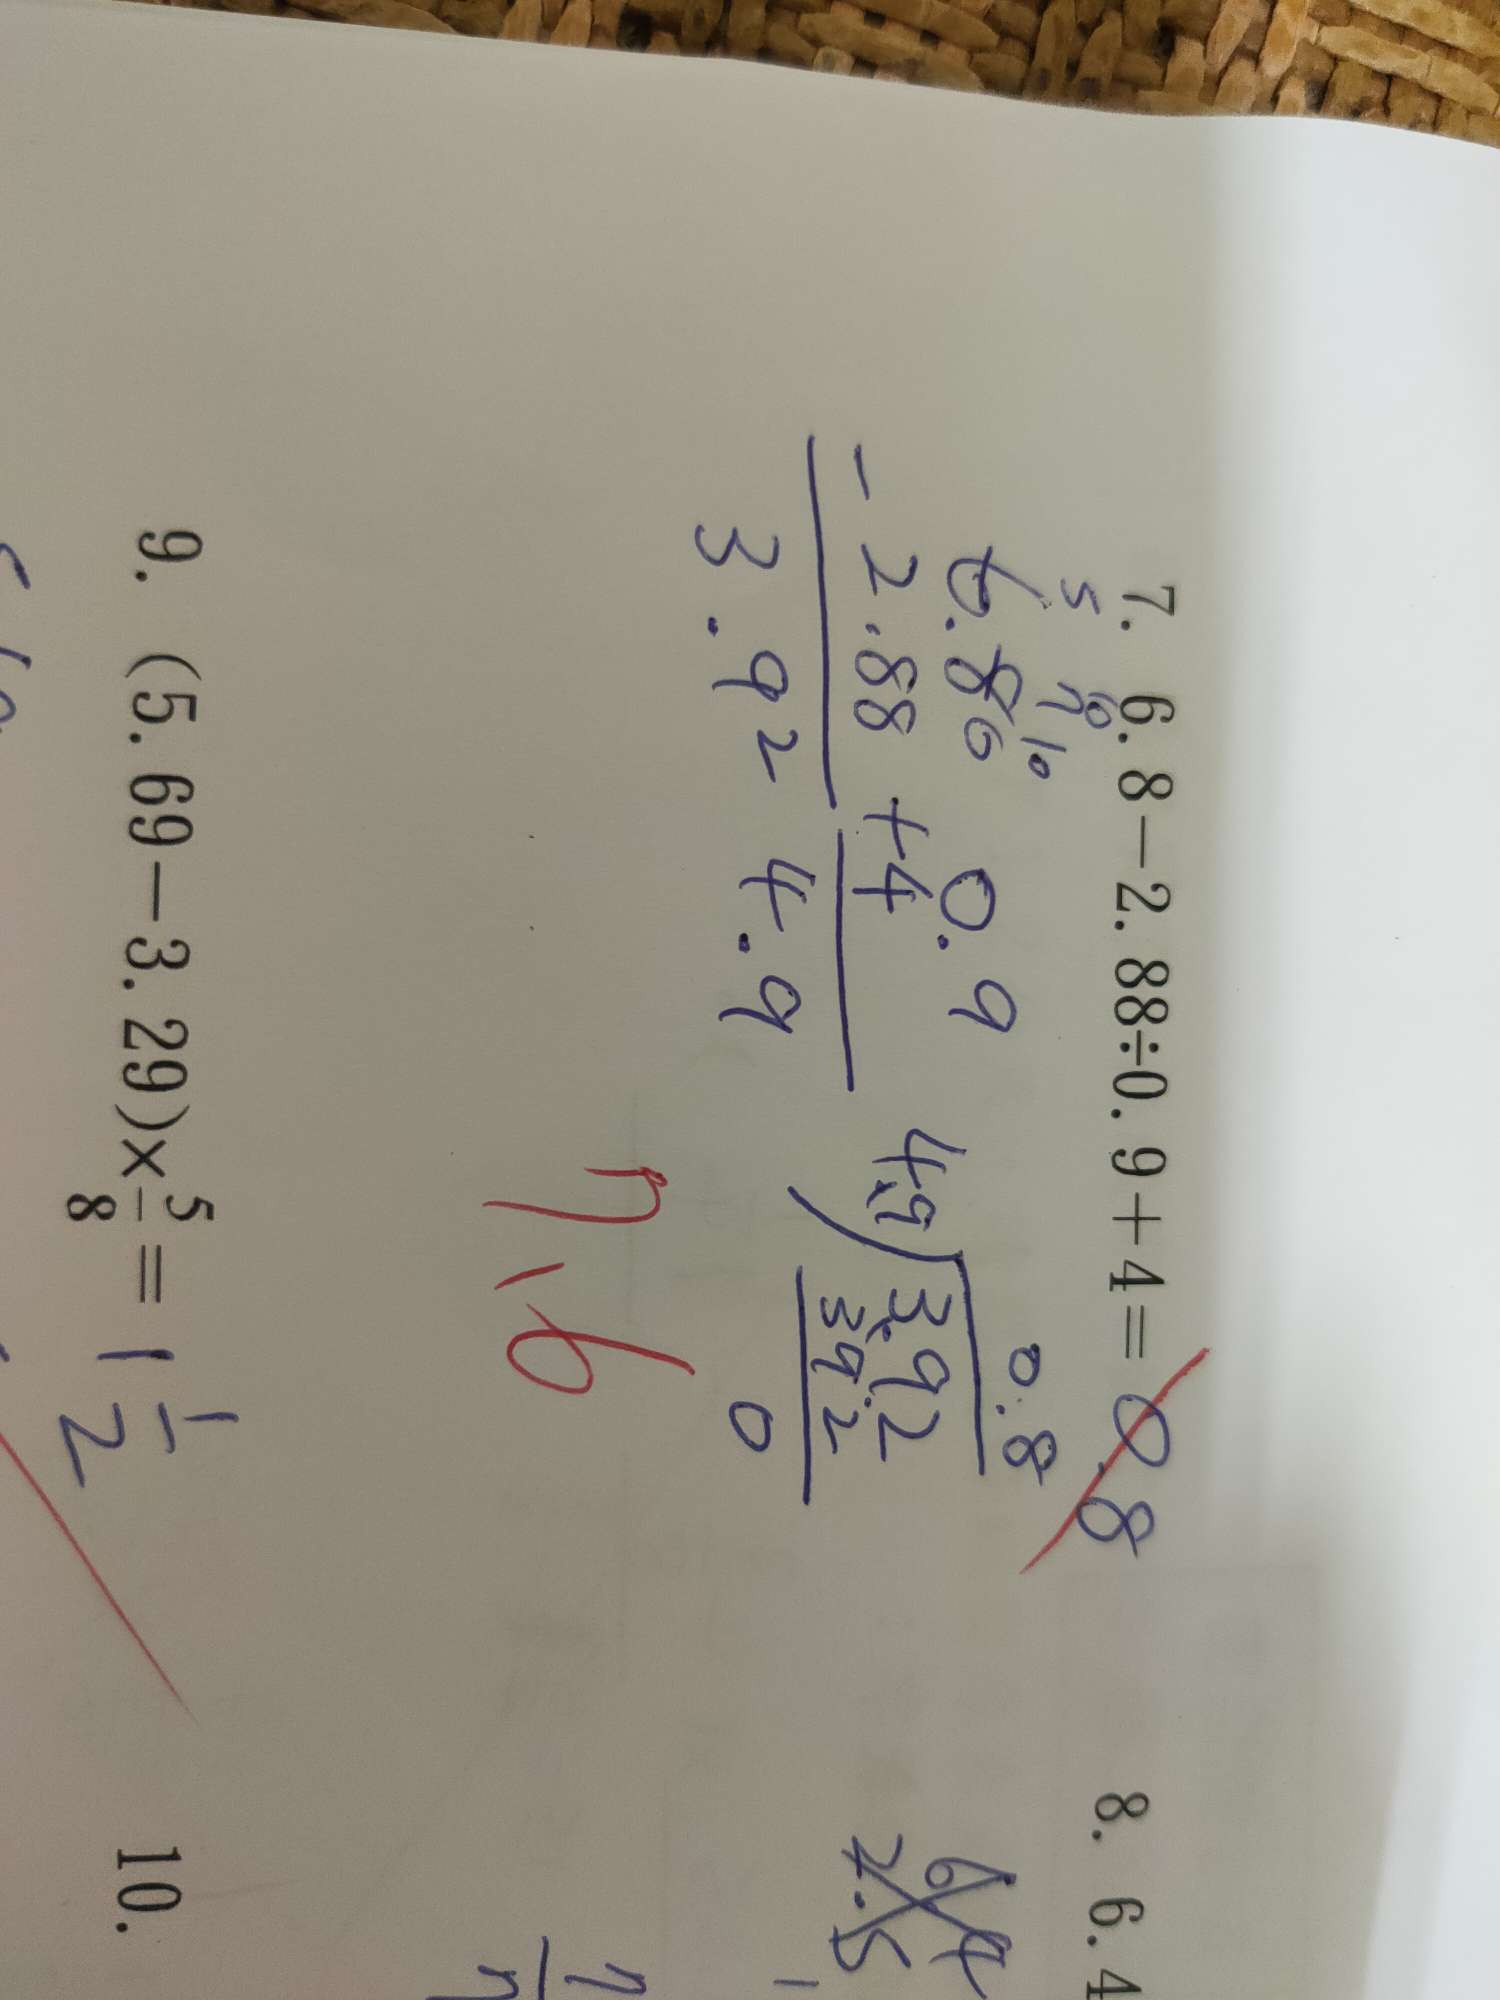 7. 6.8-2.88÷0.9+4= 0.8
5 7 10 10
6.80
- 2.88
3.92
0.9
+4
4.9
0.8
4.9 3.92
392
0
7.6
8. 6.4
6.4
2.5
9. (5.69-3.29)×5/8= 1 1/2
10.